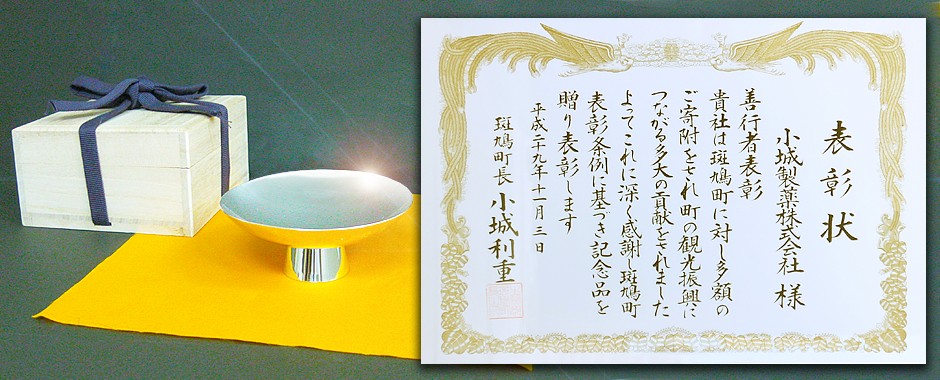 表彰状
小城製薬株式会社 様
善行者表彰
貴社は斑鳩町に対し多額の
ご寄附をされ町の観光振興に
つながる多大の貢献をされました
よってこれに深く感謝し斑鳩町
表彰条例に基づき記念品を
贈り表彰します
平成二十九年十一月三日
斑鳩町長 小城利重